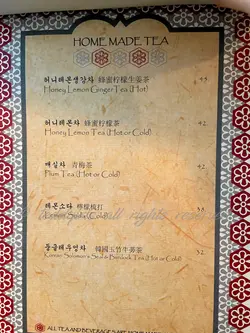 HOME MADE TEA
허니레몬생강차 蜂蜜柠檬生姜茶 49.
Honey Lemon Ginger Tea (Hot)
허니레몬차 蜂蜜柠檬茶 42.
Honey Lemon Tea (Hot or Cold)
매실차 青梅茶 42.
Plum Tea (Hot or Cold)
레몬소다 檸檬梳打 38.
Lemon Soda (Cold)
둥굴레우엉차 韓國玉竹牛蒡茶 32.
Korean Solomon's Seal & Burdock Tea (Hot or Cold)
all rights reserved
ALL TEA AND BEVERAGES ARE HOME MADE